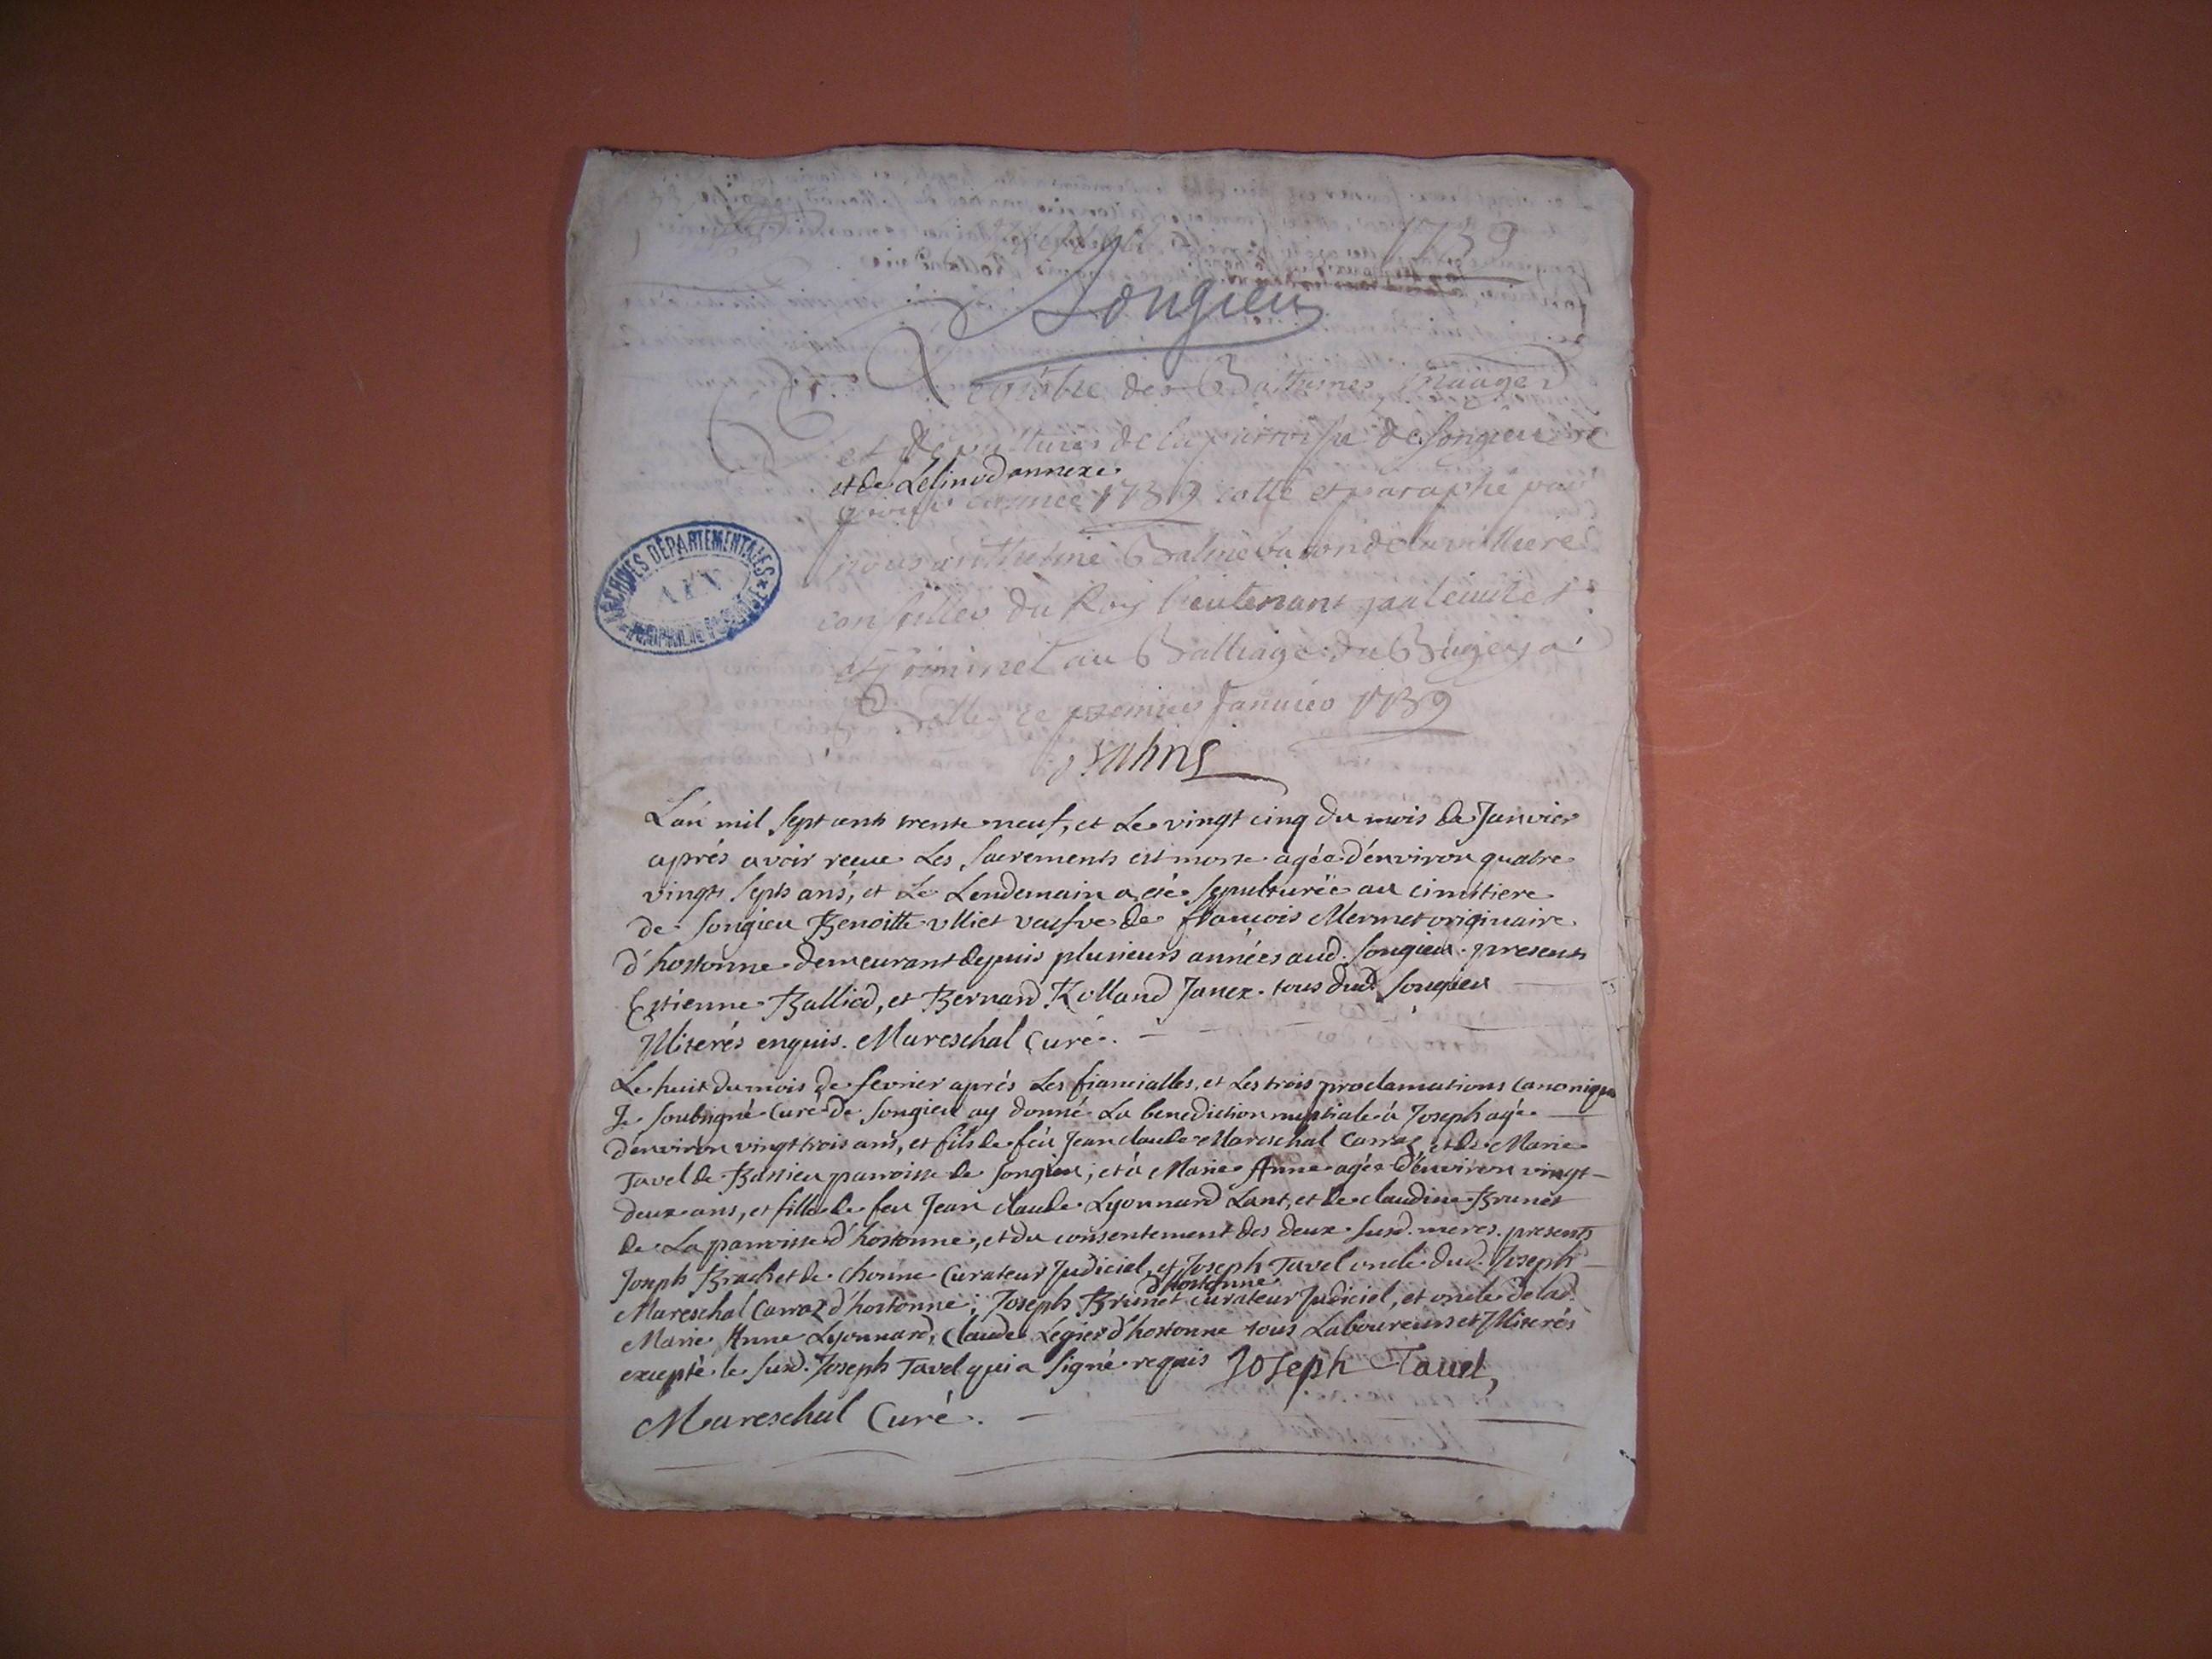 1739
Songieu
Registre des Battemes Mariages
et Sepultures de la parroisse de Songieu
et de Lelinod annexe
pour l'année 1739 cotté et paraphé par
nous anthelme Balme
conseiller du Roy lieutenant particulier
et Criminel au Balliage du Bugey a
Belley ce premier Janvier 1739
Balme
ARCHIVES DÉPARTEMENTALES
AIN
L'an mil sept cents trente neuf, et le vingt cinq du mois de Janvier
aprés avoir reçue les sacrements est morte agée d'environ quatre
vingts septs ans, et le Lendemain a été sepulturée au cimitiere
de Songieu Benoitte ulliet veufve de françois Mermet originaire
d'hostonne demeurant depuis plusieurs années aud. Songieu. presents
Estienne Balliod, et Bernard Rolland Janex. tous dud. Songieu
Jlliterés enquis. Mareschal Curé.
Le huit du mois de fevrier aprés Les fiancialles, et Les trois proclamations canoniques
Je soubsigné Curé de Songieu ay donné La benediction nuptiale á Joseph agé
d'environ vingt trois ans, et fils de feu Jean claude Mareschal Carraz et de Marie
Tavel de Bassieu parroisse de Songieu; et á Marie Anne agée d'environ vingt-
deux ans, et fille de feu Jean claude Lyonnard Lant, et de claudine Brunet
de La parroisse d'hostonne, et du consentement des deux susd. meres. presents
Joseph Brachet de Chonne Curateur Judiciel, et Joseph Tavel oncle dud. Joseph
Mareschal Carraz d'hostonne; Joseph Brunet d'hostonne curateur Judiciel, et oncle de lad.
Marie Anne Lyonnard, Claude Legier d'hostonne tous Laboureurs et Jlliterés
excepté le susd. Joseph Tavel qui a signé requis Joseph Tavel,
Mareschal Curé.